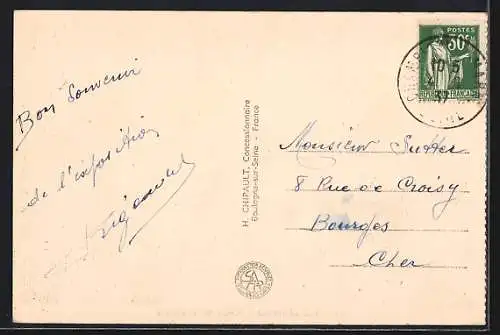 Bon Souvenir
de l'exposition
H. CHIPAULT, Concessionnaire
Boulogne-sur-Seine - France
POSTES
30c
FRANÇAISE
10 5
37
Monsieur Sutter
8 Rue de Croisy
Bourges
Cher